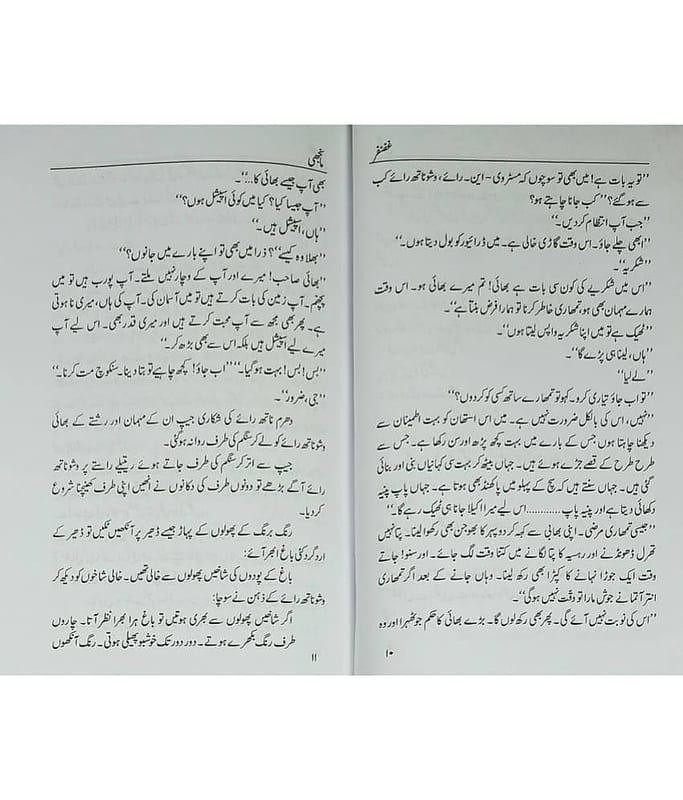 غضنفر
"تو یہ بات ہے! میں بھی تو سوچوں کہ مسٹر وی - این - رائے، وشوناتھ رائے کب
سے ہو گئے؟" "کب جانا چاہتے ہو؟
"جب آپ انتظام کر دیں۔"
"ابھی چلے جاؤ۔ اس وقت گاڑی خالی ہے۔ میں ڈرائیور کو بول دیتا ہوں۔"
"شکریہ"۔
"اس میں شکریے کی کون سی بات ہے بھائی! تم میرے بھائی ہو۔ اس وقت
ہمارے مہمان بھی ہو، تمھاری خاطر کرنا تو ہمارا فرض بنتا ہے"۔
"ٹھیک ہے تو میں اپنا شکریہ واپس لیتا ہوں"۔
"ہاں، لینا ہی پڑے گا"۔
"لے لیا"
"تو اب جاؤ تیاری کرو۔ کہو تو تمھارے ساتھ کسی کو کردوں؟"
"نہیں، اس کی بالکل ضرورت نہیں ہے۔ میں اس استھان کو بہت اطمینان سے
دیکھنا چاہتا ہوں جس کے بارے میں بہت کچھ پڑھ اور سن رکھا ہے۔ جس سے
طرح طرح کے قصے جڑے ہوئے ہیں۔ جہاں بیٹھ کر بہت سی کہانیاں بنی اور بنائی
گئی ہیں۔ جہاں سنتے ہیں کہ سچ کے پہلو میں پاکھنڈ بھی ہوتا ہے۔ جہاں پاپ پنیہ
دکھائی دیتا ہے اور پنیہ پاپ............اس لیے میرا اکیلا جانا ہی ٹھیک رہے گا۔"
"جیسی تمھاری مرضی۔ اپنی بھابی سے کہہ کر دوپہر کا بھوجن بھی رکھوا لینا۔ پتا نہیں
تھرل ڈھونڈنے اور رہسیہ کا پتا لگانے میں کتنا وقت لگ جائے۔ اور سنو! جاتے
وقت ایک جوڑا نہانے کا کپڑا بھی رکھ لینا۔ وہاں جانے کے بعد اگر تمھاری
انتر آتمانے جوش مارا تو دقت نہیں ہوگی"۔
"اس کی نوبت نہیں آئے گی۔ پھر بھی رکھ لوں گا۔ بڑے بھائی کا حکم جو ٹھہرا اور وہ
۱۰
مانجھی
بھی آپ جیسے بھائی کا..."۔
"آپ جیسا کیا؟ کیا میں کوئی اسپیشل ہوں؟"
"ہاں، اسپیشل ہیں۔"
"بھلا وہ کیسے"؟ ذرا میں بھی تو اپنے بارے میں جانوں؟"
"بھائی صاحب! میرے اور آپ کے وچار نہیں ملتے۔ آپ پورب ہیں تو میں
پچھم۔ آپ زمین کی بات کرتے ہیں تو میں آسان کی۔ آپ کی ہاں، میری نا ہوتی
ہے۔ پھر بھی مجھ سے آپ محبت کرتے ہیں اور میری قدر بھی۔ اس لیے آپ
میرے لیے اسپیشل ہیں بلکہ اس سے بھی بڑھ کر"۔
"بس! بس! بہت ہو گیا۔" "اب جاؤ! کچھ چاہیے تو بتا دینا۔ سنکوچ مت کرنا۔"
"جی، ضرور"۔
دھرم ناتھ رائے کی شکاری جیپ ان کے مہمان اور رشتے کے بھائی
وشوناتھ رائے کو لے کر سنگم کی طرف روانہ ہوگئی۔
جیپ سے اتر کر سنگم کی طرف جاتے ہوئے ریتیلے راستے پر وشوناتھ
رائے آگے بڑھے تو دونوں طرف کی دکانوں نے انھیں اپنی طرف کھینچنا شروع
کر دیا۔
رنگ برنگ کے پھولوں کے پہاڑ جیسے ڈھیر پر آنکھیں ٹکیں تو ڈھیر کے
ارد گرد کئی باغ ابھر آئے:
باغ کے پودوں کی شاخیں پھولوں سے خالی تھیں۔ خالی شاخوں کو دیکھ کر
وشوناتھ رائے کے ذہن نے سوچا:
اگر شاخیں پھولوں سے بھری ہوتیں تو باغ ہرا بھرا نظر آتا۔ چاروں
طرف رنگ بکھرے ہوتے۔ دور دور تک خوشبو پھیلی ہوتی۔ رنگ آنکھوں
۱۱